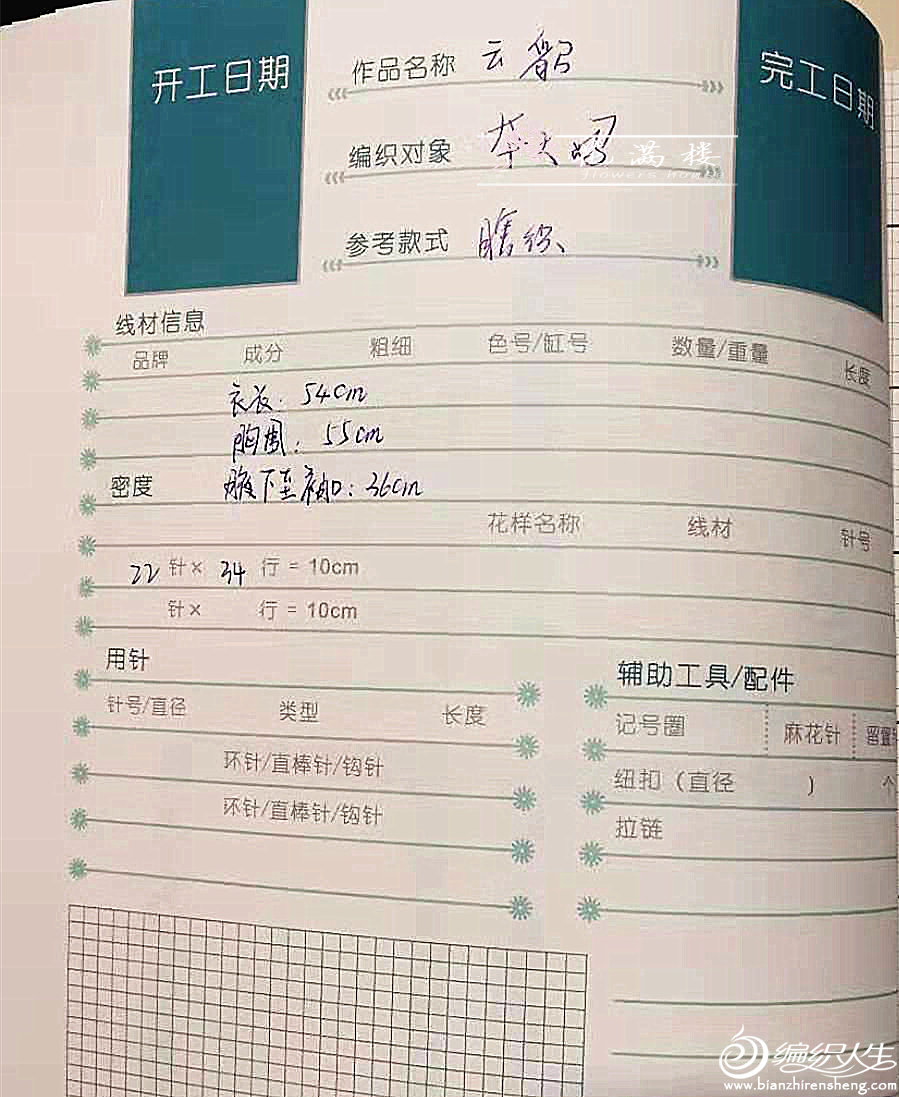 开工日期
作品名称 云韶
完工日期
编织对象 华大妈
满楼
flowers house
参考款式 瞎织、
线材信息
品牌 成分 粗细 色号/缸号 数量/重量 长度
衣长: 54cm
胸围: 55cm
密度 腋下至袖口: 36cm
花样名称 线材 针号
22 针× 34 行 = 10cm
针× 行 = 10cm
用针
辅助工具/配件
针号/直径 类型 长度
记号圈 麻花针
环针/直棒针/钩针
纽扣(直径 ) 个
环针/直棒针/钩针
拉链
编织人生
www.bianzhirensheng.com